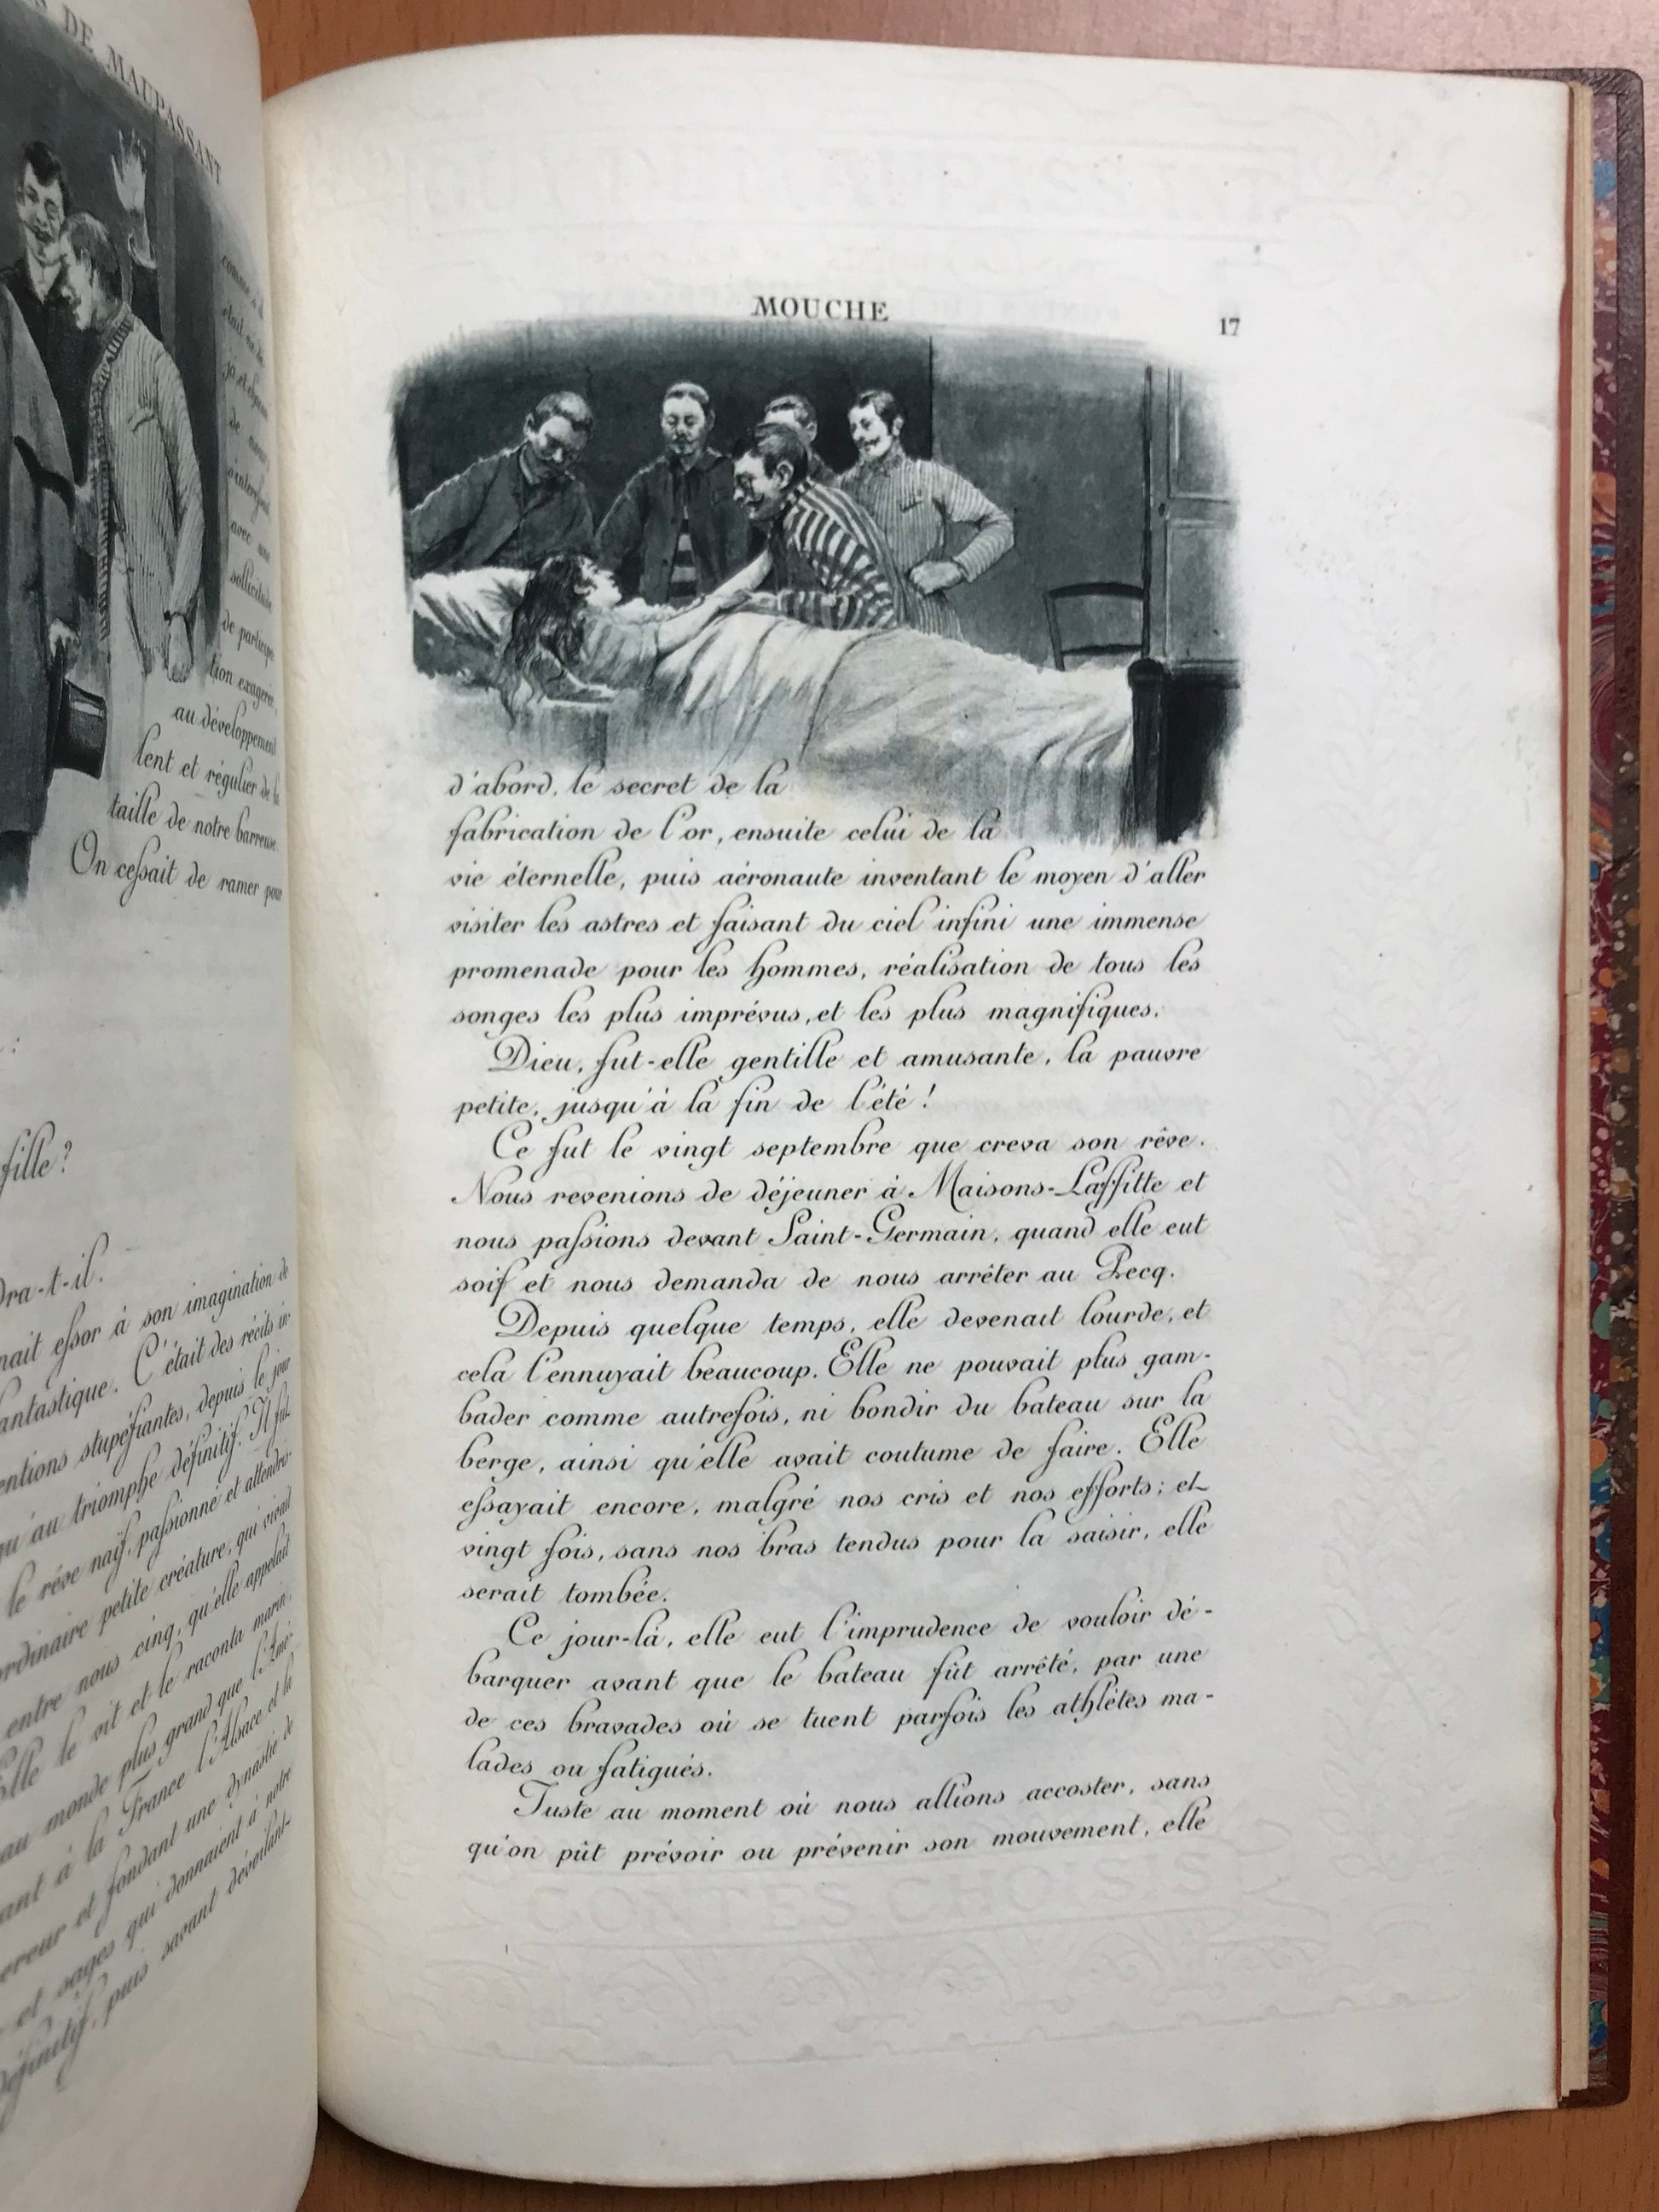 DE MAUPASSANT
comme
était
de
avec une
sollicitude
de participa-
tion exagérée
au développement
lent et régulier de la
taille de notre barreuse.
On cessait de ramer pour
fille?
dra-t-il.
nait essor à son imagination de
antastique. C'était des récits in-
entions stupéfiantes, depuis le jour
qu'au triomphe définitif. Il fut
le rêve naïf, passionné et attendris-
ordinaire petite créature, qui vivait
entre nous cinq, qu'elle appelait
Elle le vit et le raconta marin,
au monde plus grand que l'Amé-
ant à la France l'Alsace et la
ereur et fondant une dynastie de
et sages qui donnaient à notre
définitif, puis savant dévoilant
MOUCHE
17
d'abord, le secret de la
fabrication de l'or, ensuite celui de la
vie éternelle, puis aéronaute inventant le moyen d'aller
visiter les astres et faisant du ciel infini une immense
promenade pour les hommes, réalisation de tous les
songes les plus imprévus, et les plus magnifiques.
Dieu, fut-elle gentille et amusante, la pauvre
petite, jusqu'à la fin de l'été!
Ce fut le vingt septembre que creva son rêve.
Nous revenions de déjeuner à Maisons-Laffitte et
nous passions devant Saint-Germain, quand elle eut
soif et nous demanda de nous arrêter au Pecq.
Depuis quelque temps, elle devenait lourde, et
cela l'ennuyait beaucoup. Elle ne pouvait plus gam-
bader comme autrefois, ni bondir du bateau sur la
berge, ainsi qu'elle avait coutume de faire. Elle
essayait encore, malgré nos cris et nos efforts; et
vingt fois, sans nos bras tendus pour la saisir, elle
serait tombée.
Ce jour-là, elle eut l'imprudence de vouloir dé-
barquer avant que le bateau fût arrêté, par une
de ces bravades où se tuent parfois les athlètes ma-
lades ou fatigués.
Juste au moment où nous allions accoster, sans
qu'on pût prévoir ou prévenir son mouvement, elle